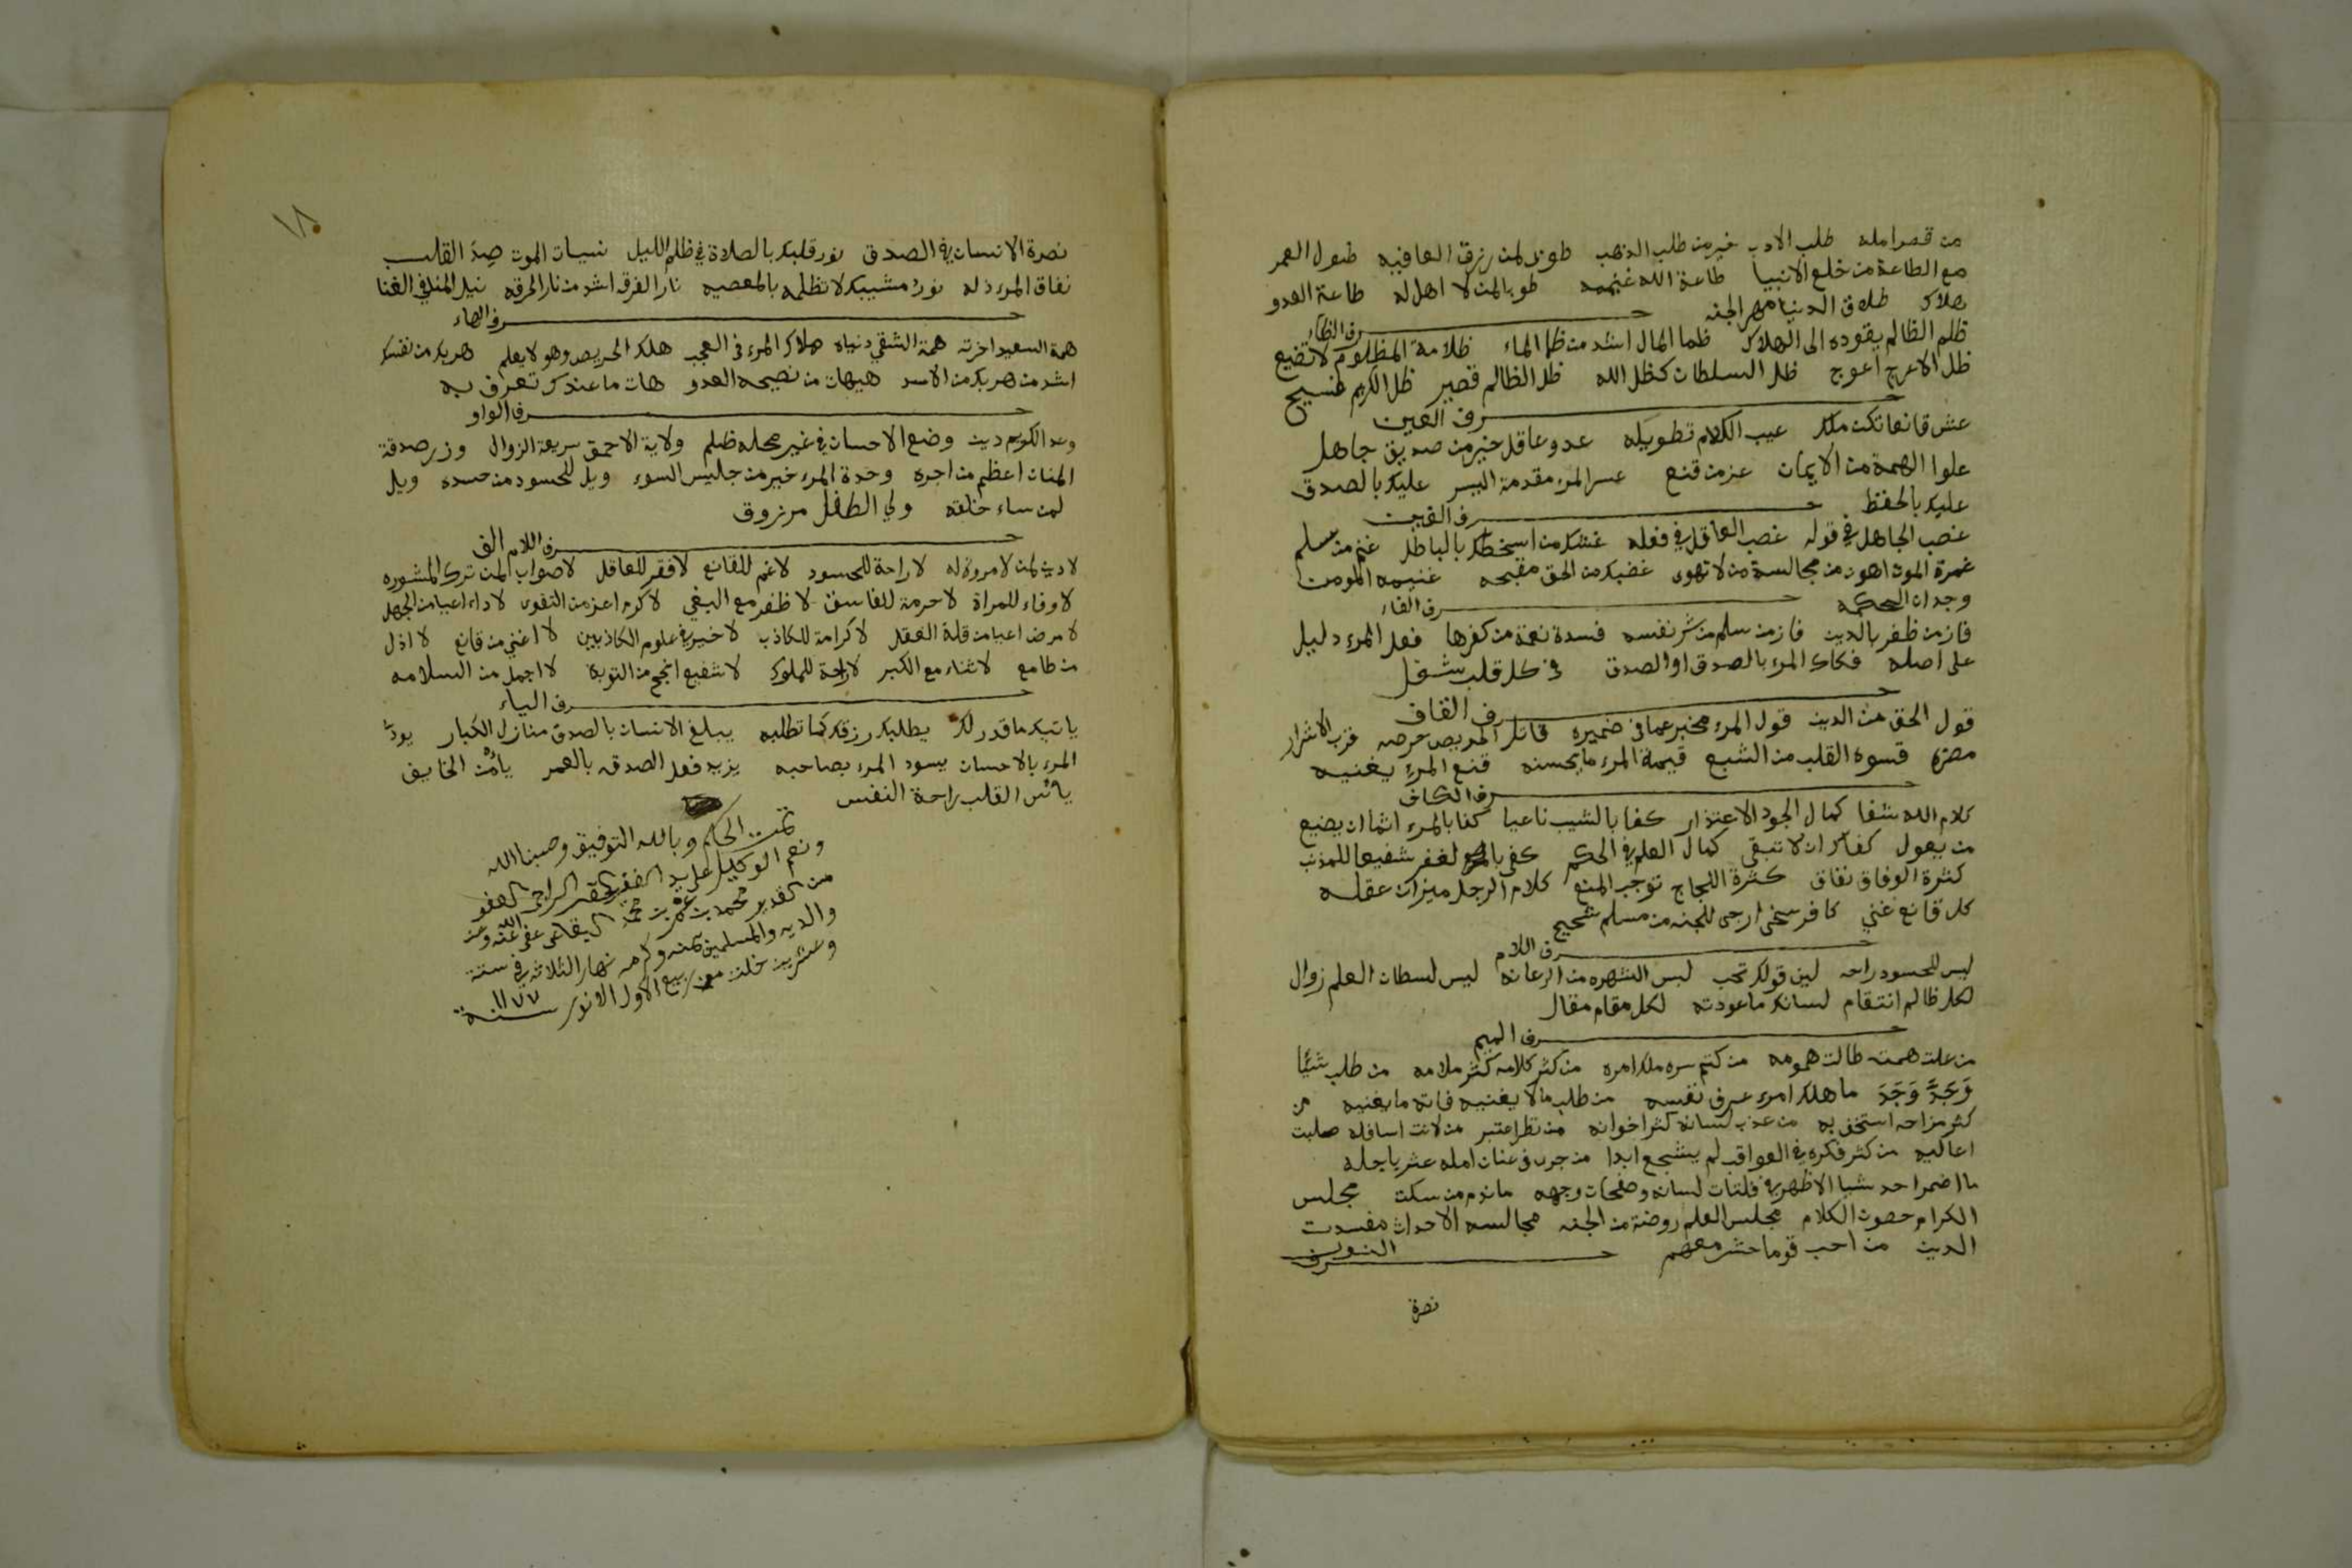 من قصر امله طلب الادب خير من طلب الذهب طوبى لمن رزق العافيه طول العمر
مع الطاعة من خلع الانبيا طاعة الله غنيمه طوبا لمن لا اهل له طاعة العدو
هلاك طلاق الدنيا مهر الجنه حرف الظاء
ظلم الظالم يقوده الى الهلاك ظما المال اشد من ظما الماء ظلامة المظلوم لا تضيع
ظل الاعرج اعوج ظل السلطان كظل الله ظل الظالم قصير ظل الكريم فسيح
حرف العين
عش قانعا تكن ملك عيب الكلام تطويله عدو عاقل خير من صديق جاهل
علوا الهمة من الايمان عز من قنع عسر المرء مقدمة اليسر عليك بالصدق
عليك بالحفظ حرف الغين
غضب الجاهل في قوله غضب العاقل في فعله غشك من اسخطك بالباطل غنم من سلم
غمرة الموت اهون من مجالسة من لا تهوى غضبك من الحق مقبحه غنيمه المومن
وجدان الحكمه حرف الفاء
فاز من ظفر بالدين فاز من سلم من شر نفسه فسدة نعمة من كفرها فعل المرء دليل
على اصله فكاك المرء بالصدق او الصدق في كل قلب شغل
حرف القاف
قول الحق من الدين قول المرء مخبر عما في ضميره قاتل الحريص حرصه قرب الاشرار
مضره قسوه القلب من الشبع قيمة المرء ما يحسنه قنع المرء يغنيه
حرف الكاف
كلام الله شفا كمال الجود الاعتذار كفا بالشيب ناعيا كفا بالمرء اثما ان يضيع
من يعول كفاك ان لا تبقى كمال العلم في الحكم كفى لغفر شفيعا للمذنب
كثرة الوفاق نفاق كثرة اللجاج توجب المنع كلام الرجل ميزان عقله
كل قانع غني كافر سخى ارجى للجنه من مسلم شحيح
حرف اللام
ليس للحسود راحه لين قولك تحب لبس الشهره من الرعانه ليس لسطان العلم زوال
لكل ظالم انتقام لسانك ما عودته لكل مقام مقال
حرف الميم
من علت همته طالت همومه من كتم سره ملك امره من كثر كلامه كثر ملامه من طلب شئا
وَجَدَّ وَجَدَ ما هلك امرء عرف نفسه من طلب مالا يغنيه فاته ما يغنيه من
كثر مزاحه استخف به من عذب لسانه كثر اخوانه من نظر اعتبر من لانت اسافله صلبت
اعاليه من كثر فكره في العواقب لم يشجع ابدا من جرى في عنان امله عثر باجله
ما اضمر احد شيا الا ظهر في فلتات لسانه وصفحات وجهه ما ندم من سكت مجلس
الكرام حصون الكلام مجلس العلم روضة من الجنه مجالسه الاحداث مفسدت
الدين من احب قوما حشر معهم حرف النون
نصرة
١٨
نصرة الانسان في الصدق نور قلبك بالصلاة في ظلم الليل نسيان الموت صِدَ القلب
نفاق المرء ذله نورُ مشيبك لا تظلمه بالمعصيه نار الفرقه اشد من نار الحرقه نيل المنا في الغنا
حرف الهاء
همة السعيد اخرته همة الشقي دنياه هلاك المرء في العجب هلك الحريص وهو لا يعلم هربك من نفسك
اشد من هربك من الاسد هيهات من نصيحه العدو هات ما عندك تعرف به
حرف الواو
وعد الكريم دين وضع الاحسان في غير محله ظلم ولاية الاحمق سريعة الزوال وزر صدقة
المنان اعظم من اجره وحدة المرء خير من جليس السوء ويل للحسود من حسده ويل
لمن ساء خلقه ولي الطفل مرزوق
حرف اللام الف
لا دين لمن لا مروة له لا راحة للحسود لا غم للقانع لا فقر للعاقل لا صواب لمن ترك المشوره
لا وفاء للمراة لا حرمة للفاسق لا ظفر مع البغي لا كرم اعز من التقوى لا داء اعيا من الجهل
لا مرض اعيا من قلة العقل لا كرامة للكاذب لا خير في علوم الكاذبين لا اغني من قانع لا اذل
من طامع لا ثناء مع الكبر لا راحة للملوك لا شفيع انجح من التوبة لا اجمل من السلامه
حرف الياء
ياتيك ما قدر لك يطلبك رزقك كما تطلبه يبلغ الانسان بالصدق منازل الكبار يودّ
المرء بالاحسان يسود المرء بصاحبه يزيد فعل الصدقه بالعمر يأمن الخايف
يأس القلب راحة النفس
تمت الحكم وبالله التوفيق وحسبنا الله
ونعم الوكيل على يد الفقير الحقير الراجي العفو
من القدير محمد بن عمر بن محمد البقاعي عفى الله عنه وعن
والديه والمسلمين بمنه وكرمه نهار الثلاثه في ستة
وعشرين خلت من ربيع الاول الانور سنة ١١٧٧